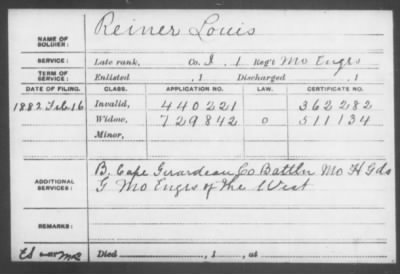 NAME OF SOLDIER: Reiner Louis
SERVICE: Late rank, Co. I. 1 Reg't Mo Engrs
TERM OF SERVICE: Enlisted , 1 Discharged , 1
DATE OF FILING. CLASS. APPLICATION NO. LAW. CERTIFICATE NO.
1882 Feb 16 Invalid, 440221 362282
Widow, 729842 o 511134
Minor,
ADDITIONAL SERVICES: B. Cape Girardeau Co Battln Mo H Gds
G Mo Engrs of the West
REMARKS:
Died , 1 , at